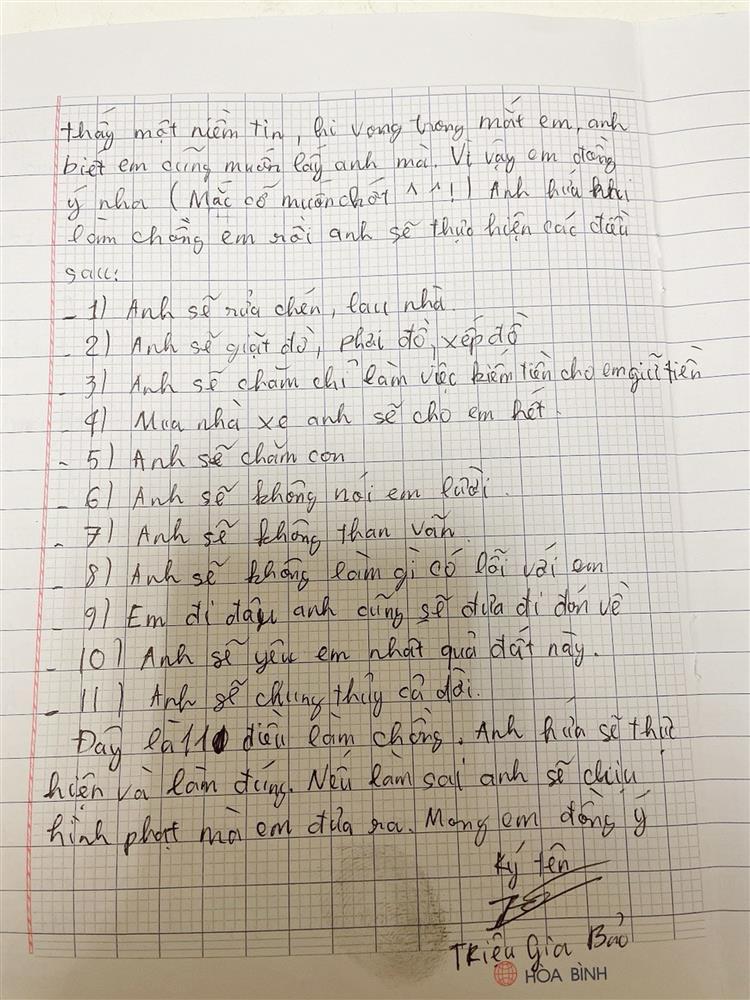 thấy một niềm tin, hi vọng trong mắt em, anh
biết em cũng muốn lấy anh mà. Vì vậy em đồng
ý nha (Mắc cố muốn chớt ^ ^!) Anh hứa khi
làm chồng em rồi anh sẽ thực hiện các điều
sau:
- 1) Anh sẽ rửa chén, lau nhà.
- 2) Anh sẽ giặt đồ, phơi đồ, xếp đồ
- 3) Anh sẽ chăm chỉ làm việc kiếm tiền cho em giữ tiền
- 4) Mua nhà xe anh sẽ cho em hết.
- 5) Anh sẽ chăm con
- 6) Anh sẽ không nói em lười.
- 7) Anh sẽ không than vãn.
- 8) Anh sẽ không làm gì có lỗi với em
- 9) Em đi đâu anh cũng sẽ đưa đi đón về
- 10) Anh sẽ yêu em nhất quả đất này.
- 11) Anh sẽ chung thủy cả đời.
Đây là 11 điều làm chồng. Anh hứa sẽ thực
hiện và làm đúng. Nếu làm sai anh sẽ chịu
hình phạt mà em đưa ra. Mong em đồng ý
Ký tên
Triệu Gia Bảo
HÒA BÌNH